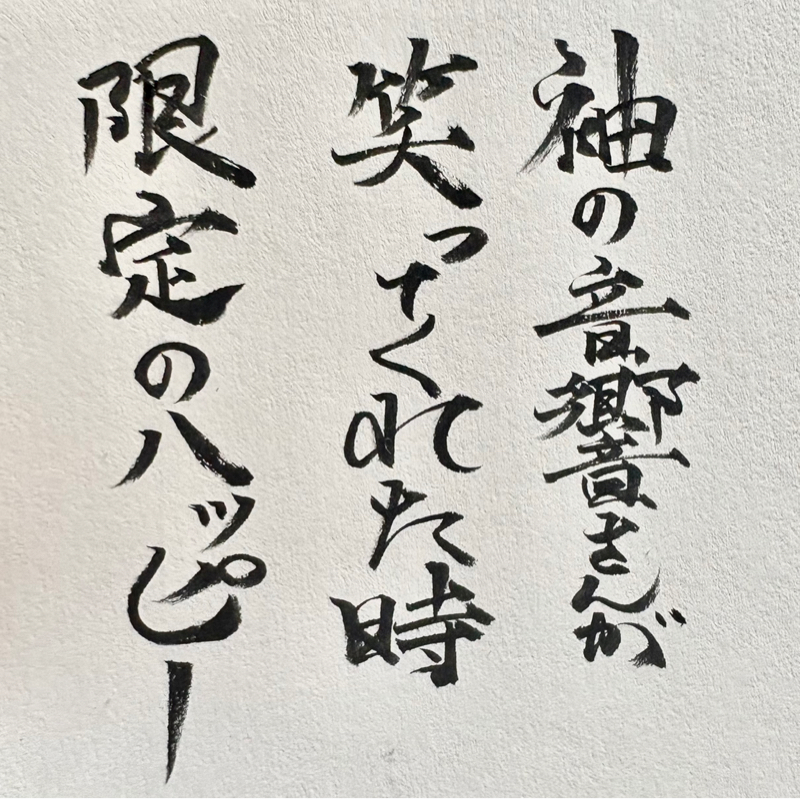 袖の音響さんが
笑ってくれた時
限定のハッピー